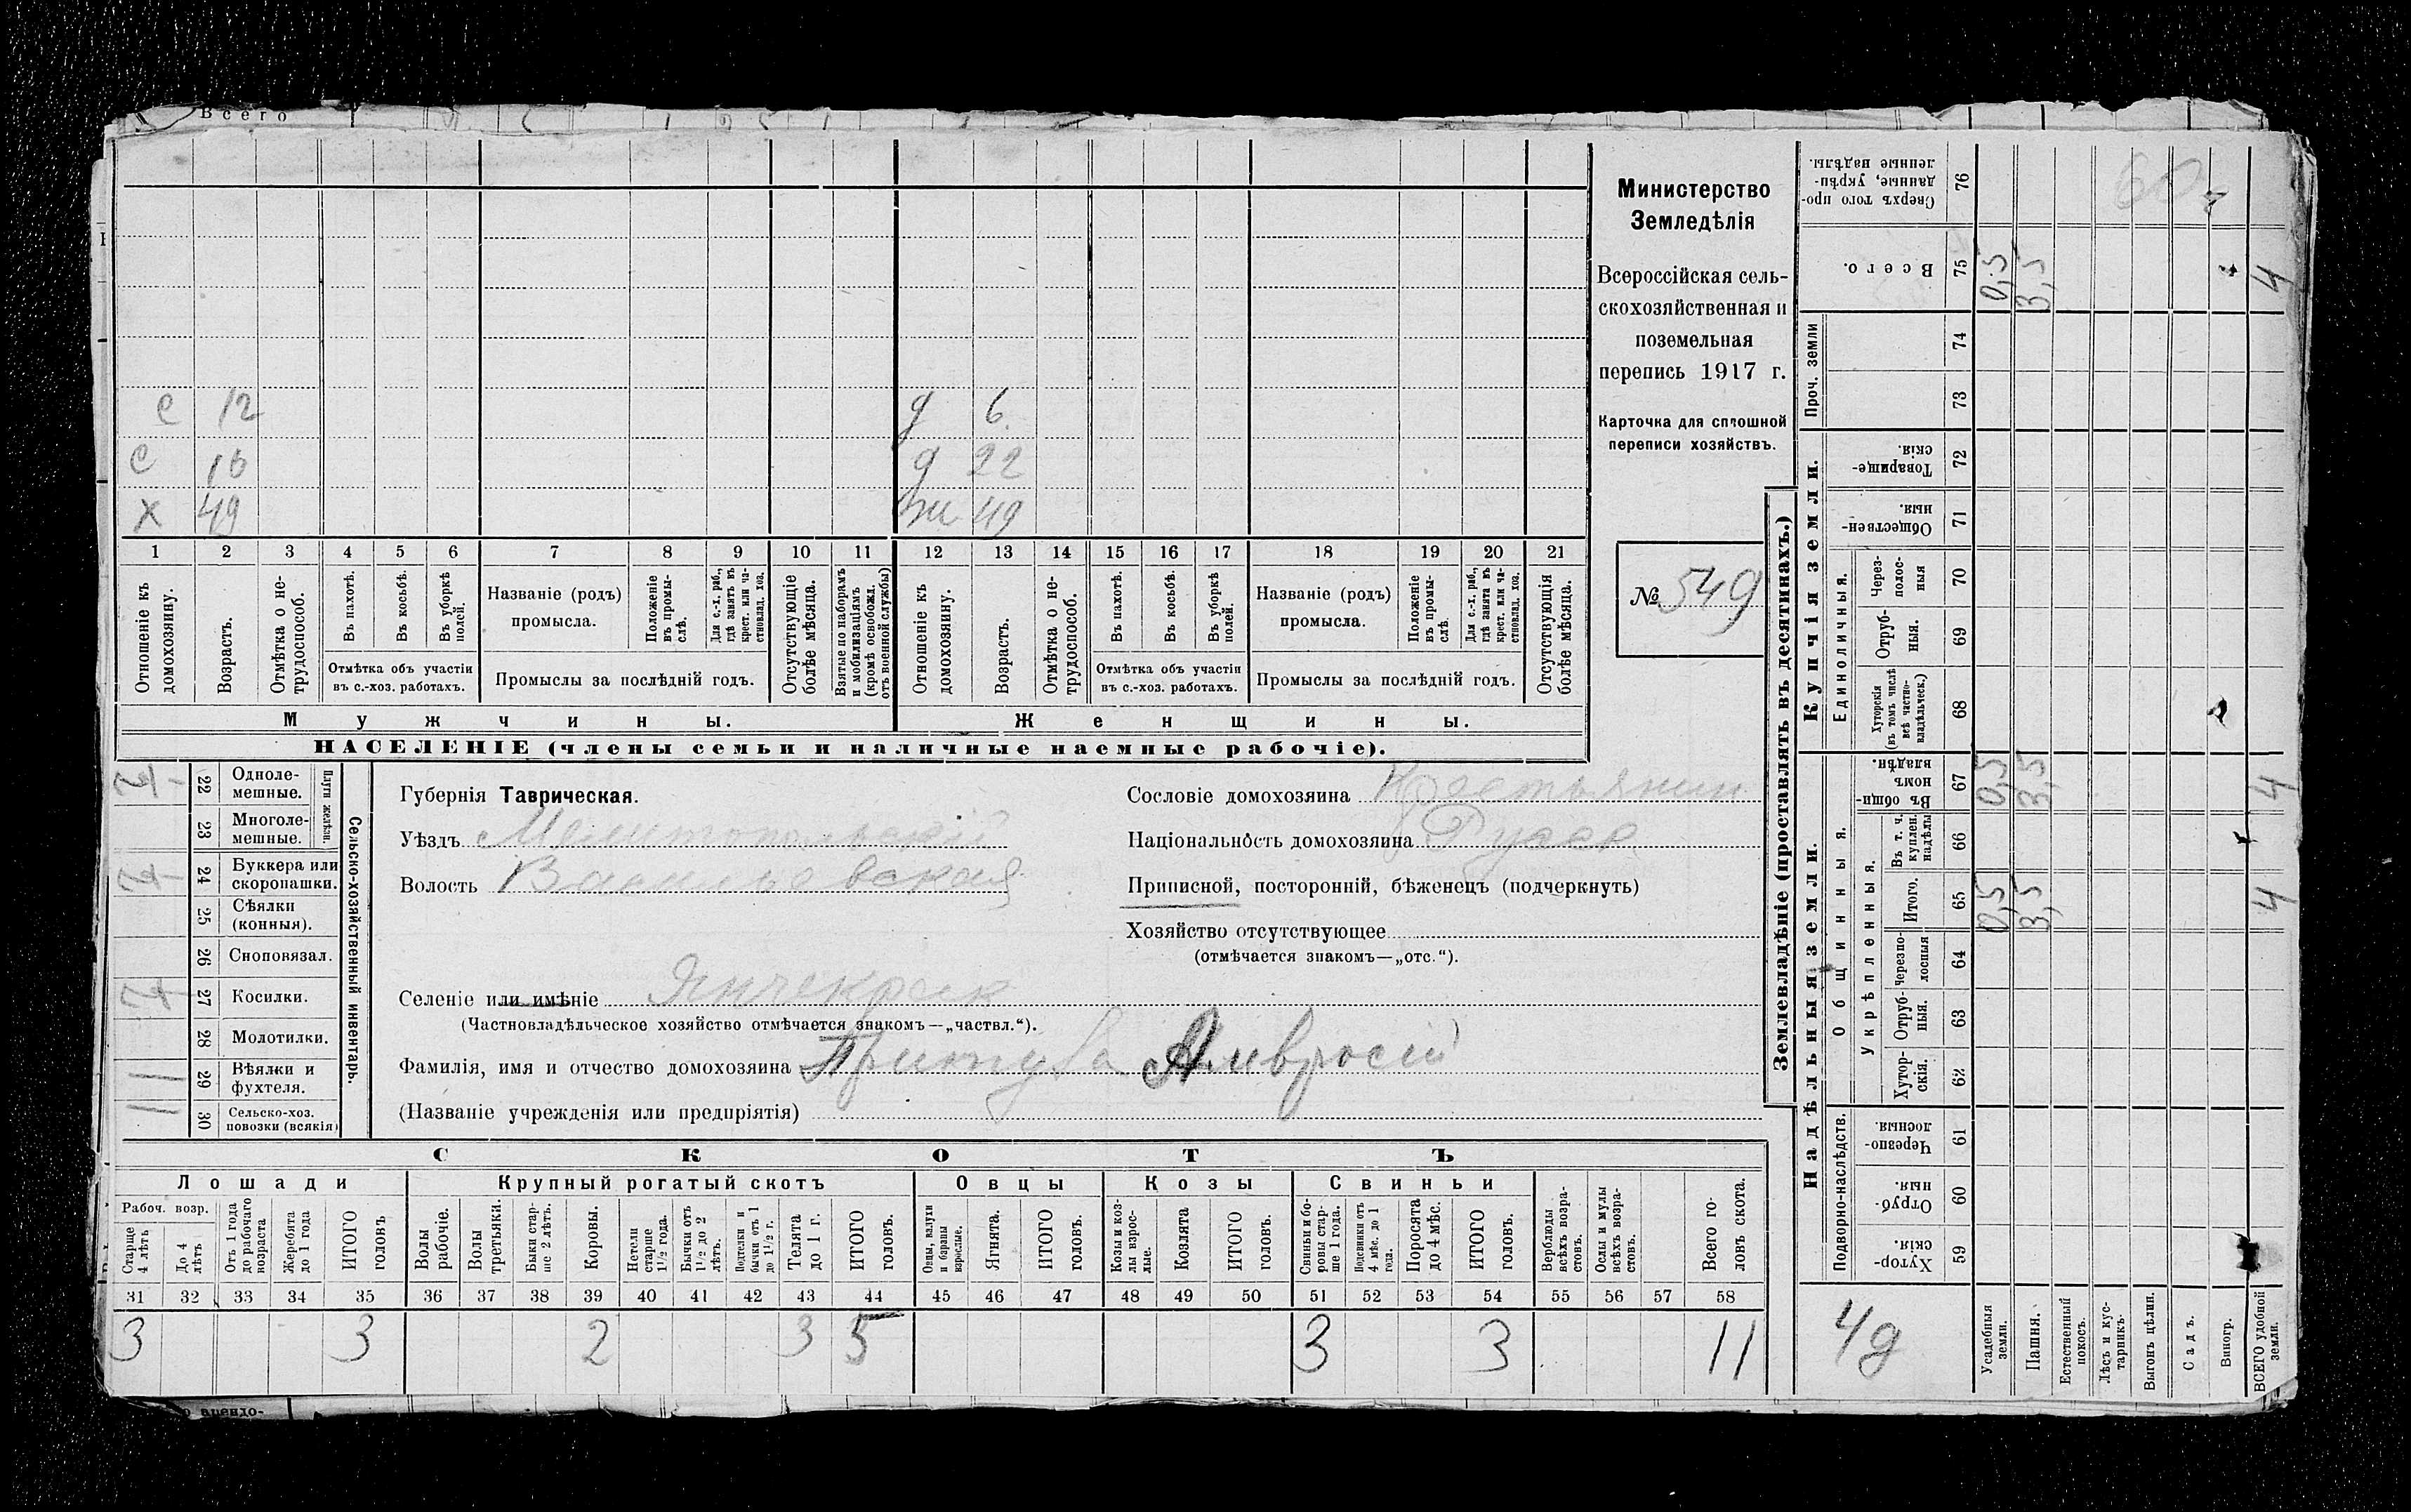 Всего
с 12 д 6
с 16 д 22
х 49 жи 49
1 2 3 4 5 6 7 8 9 10 11 12 13 14 15 16 17 18 19 20 21
Отношеніе къ домохозяину.
Возрастъ.
Отмѣтка о не-трудоспособ.
Въ пахотѣ.
Въ косьбѣ.
Въ уборкѣ полей.
Отмѣтка объ участіи
въ с.-хоз. работахъ.
Названіе (родъ)
промысла.
Положеніе въ промы-слѣ.
Для с.-х. раб., гдѣ занятъ въ крест. или ча-стновлад. хоз.
Промыслы за послѣдній годъ.
Отсутствующіе болѣе мѣсяца.
Взятые по наборамъ и мобилизаціямъ (кромѣ освобожд. отъ военной службы)
Отношеніе къ домохозяину.
Возрастъ.
Отмѣтка о не-трудоспособ.
Въ пахотѣ.
Въ косьбѣ.
Въ уборкѣ полей.
Отмѣтка объ участіи
въ с.-хоз. работахъ.
Названіе (родъ)
промысла.
Положеніе въ промы-слѣ.
Для с.-х. раб., гдѣ занята въ крест. или ча-стновлад. хоз.
Промыслы за послѣдній годъ.
Отсутствующія болѣе мѣсяца.
Мужчины.
Женщины.
НАСЕЛЕНІЕ (члены семьи и наличные наемные рабочіе).
Министерство
Земледѣлія
Всероссійская сель-
скохозяйственная и
поземельная
перепись 1917 г.
Карточка для сплошной
переписи хозяйствъ.
№ 549
22 Одноле-мешные.
23 Многоле-мешные.
Плуги желѣзн.
24 Буккера или скоропашки.
25 Сѣялки (конныя).
26 Сноповязал.
27 Косилки.
28 Молотилки.
29 Вѣялки и фухтеля.
30 Сельско-хоз. повозки (всякія)
Сельско-хозяйственный инвентарь.
Губернія Таврическая.
Уѣздъ Мелитопольскій
Волость Васильевская
Селеніе или имѣніе Янчекрак
(Частновладѣльческое хозяйство отмѣчается знакомъ—„частвл.“).
Фамилія, имя и отчество домохозяина Притуба Амвросій
(Названіе учрежденія или предпріятія)
Сословіе домохозяина Крестьянин
Національность домохозяина Русск
Приписной, посторонній, бѣженецъ (подчеркнуть)
Хозяйство отсутствующее
(отмѣчается знакомъ—„отс.“).
СКОТЪ
Лошади
Крупный рогатый скотъ
Овцы
Козы
Свиньи
Рабоч. возр.
Старше 4 лѣтъ
До 4 лѣтъ
Отъ 1 года до рабочаго возраста
Жеребята до 1 года
ИТОГО головъ
Волы рабочіе.
Волы третьяки.
Быки стар-ше 2 лѣтъ.
Коровы.
Нетели старше 1½ года.
Бычки отъ 1½ до 2 лѣтъ.
Подтелки и бычки отъ 1 до 1½ г.
Телята до 1 г.
ИТОГО головъ.
Овцы, валухи и бараны взрослые.
Ягнята.
ИТОГО головъ.
Козы и коз-лы взрос-лые.
Козлята
ИТОГО головъ.
Свиньи и бо-ровы стар-ше 1 года.
Подсвинки отъ 4 мѣс. до 1 года.
Поросята до 4 мѣс.
ИТОГО головъ.
Верблюды всѣхъ возра-стовъ.
Ослы и мулы всѣхъ возра-стовъ.
Всего го-ловъ скота.
31 32 33 34 35 36 37 38 39 40 41 42 43 44 45 46 47 48 49 50 51 52 53 54 55 56 57 58
3 3 2 3 5 3 3 11
Землевладѣніе (проставлять въ десятинахъ.)
Надѣльныя земли.
Купчія земли.
Проч. земли
Подворно-наслѣдств.
Общинныя.
Укрѣпленныя.
Единоличныя.
59 Хутор-скія.
60 Отруб-ныя.
61 Черезпо-лосныя.
62 Хутор-скія.
63 Отруб-ныя.
64 Черезпо-лосныя
65 Итого. 0,5 3,5 4
66 Въ т. ч. куплен. надѣлы
67 Въ общи-номъ владѣн. 0,5 3,5 4
68 Хуторскія (въ томъ числѣ всѣ частно-владѣльческ.)
69 Отруб-ныя.
70 Через-полос-ныя
71 Обществен-ныя.
72 Товарище-скія.
73
74
75 Всего. 0,5 3,5 4
76 Сверхъ того про-данные, укрѣп-ленные надѣлы.
60
4д
Усадебныя земли.
Пашня.
Естественный покосъ.
Лѣсъ и кус-тарникъ.
Выгонъ цѣлин.
Садъ.
Виногр.
ВСЕГО удобной земли.